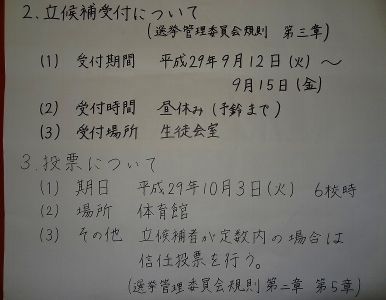 2.立候補受付について
(選挙管理委員会規則 第三章)
(1) 受付期間 平成29年9月12日(火)~
9月15日(金)
(2) 受付時間 昼休み(予鈴まで)
(3) 受付場所 生徒会室
3.投票について
(1) 期日 平成29年10月3日(火) 6校時
(2) 場所 体育館
(3) その他 立候補者が定数内の場合は
信任投票を行う。
(選挙管理委員会規則 第二章 第5章)